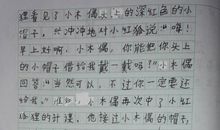 狸看见了小木偶头上的深红色的小
帽子，兴冲冲地对小红狐说"嗨！
早上好啊，小木偶，你能把你头上
的小帽子借给我戴一戴吗？"小木偶
回答"当然可以，不过你一定要还
给我。"小木偶再次中了小红
狐狸的计谋，他接过小木偶的帽子，